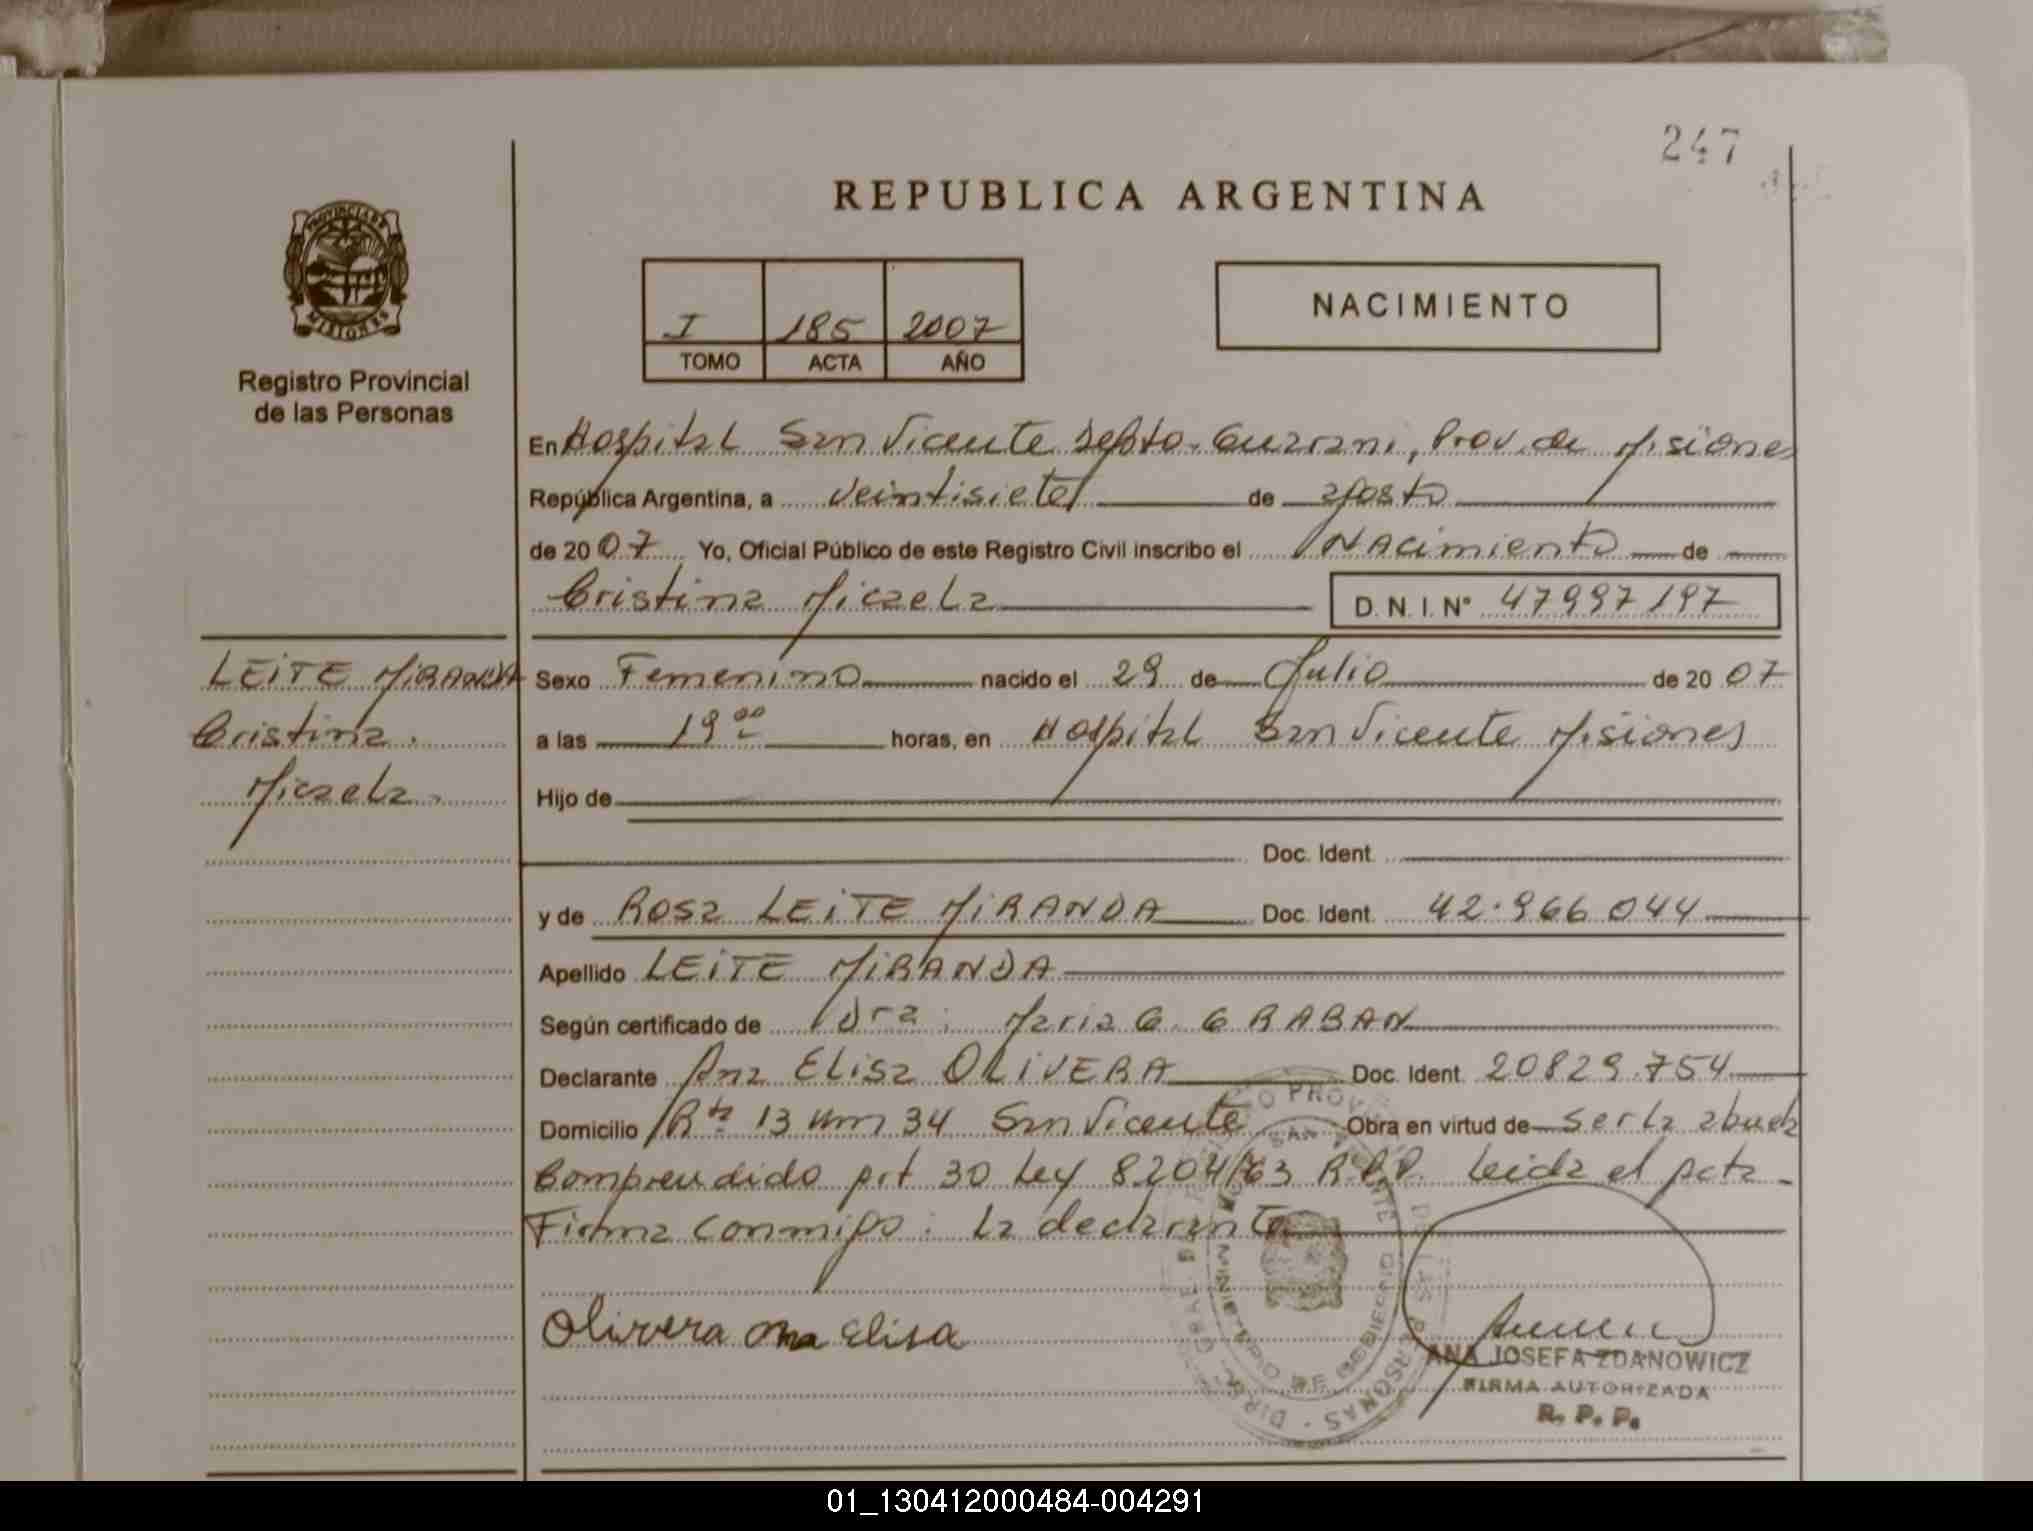 247
REPUBLICA ARGENTINA
PROVINCIA DE
MISIONES
Registro Provincial
de las Personas
I 185 2007
TOMO ACTA AÑO
NACIMIENTO
En Hospital San Vicente Depto. Guarani, Prov. de Misiones
República Argentina, a veintisiete de agosto
de 2007 Yo, Oficial Público de este Registro Civil inscribo el Nacimiento de
Cristina Micaela D.N.I. N° 47997197
LEITE MIRANDA
Cristina
Micaela
Sexo Femenino nacido el 29 de Julio de 2007
a las 19 00 horas, en Hospital San Vicente Misiones
Hijo de
Doc. Ident.
y de Rosa LEITE MIRANDA Doc. Ident. 42.966 044
Apellido LEITE MIRANDA
Según certificado de Dra: Maria G. GRABAN
Declarante Ana Elisa OLIVERA Doc. Ident. 20829.754
Domicilio Rta 13 Km 34 San Vicente Obra en virtud de ser la abuela
Comprendido Art 30 Ley 8204/63 R.P.P. Leida el Acta
Firma conmigo: la declarante
Olivera Ana Elisa
ANA JOSEFA ZDANOWICZ
FIRMA AUTORIZADA
R. P. P.
01_130412000484-004291